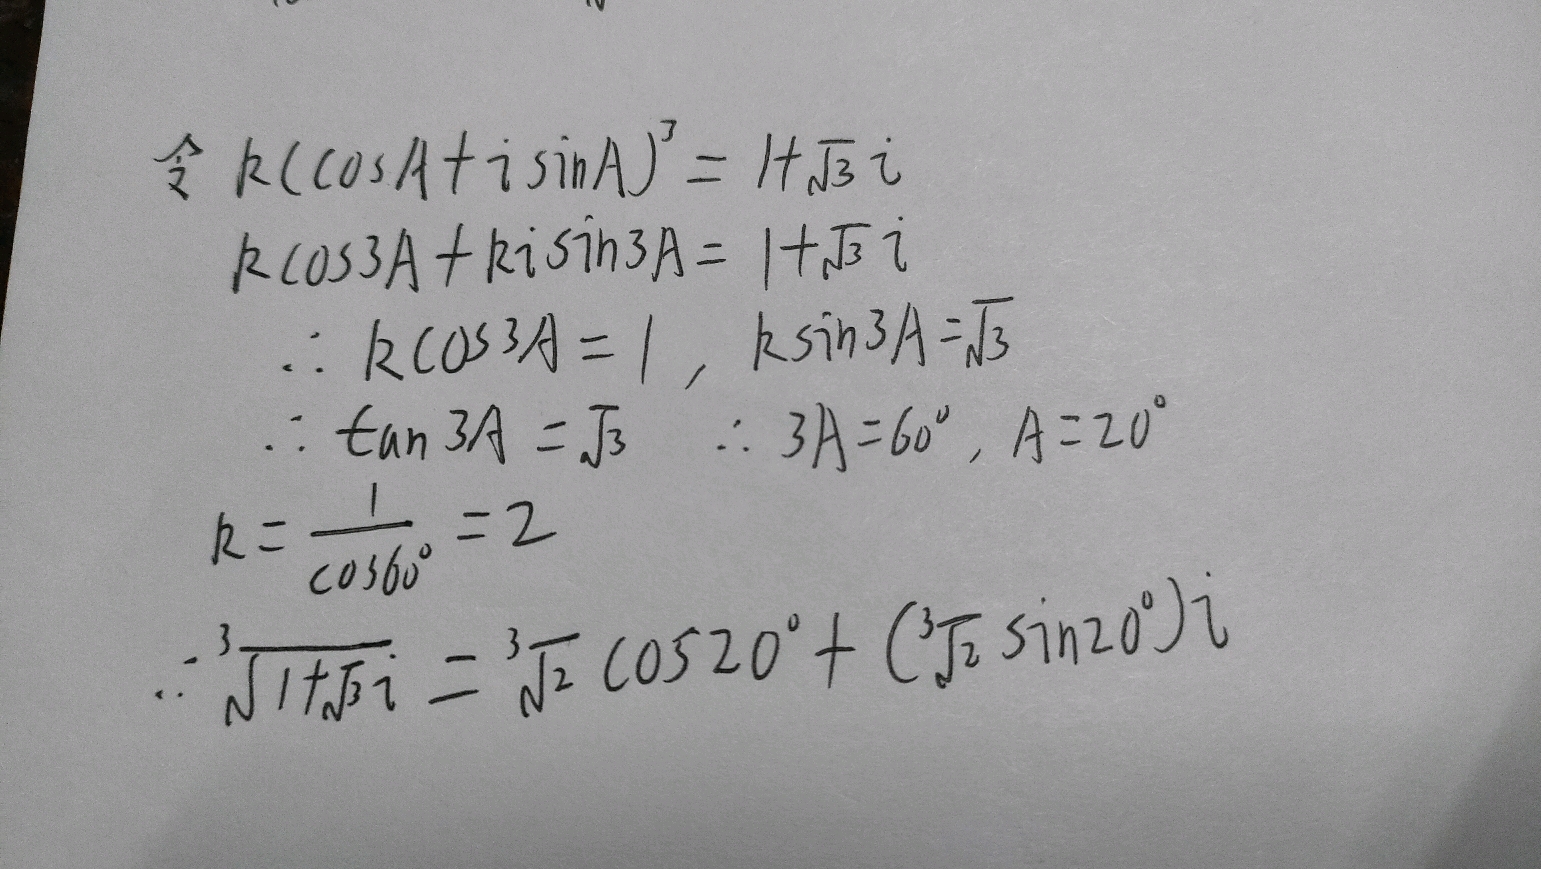 令 k(cosA+isinA)³ = 1+√3 i
kcos3A+kisin3A = 1+√3 i
∴ kcos3A=1, ksin3A=√3
∴ tan3A=√3 ∴ 3A=60°, A=20°
k=1/cos60°=2
∴ ³√(1+√3i) = ³√2 cos20°+(³√2 sin20°)i